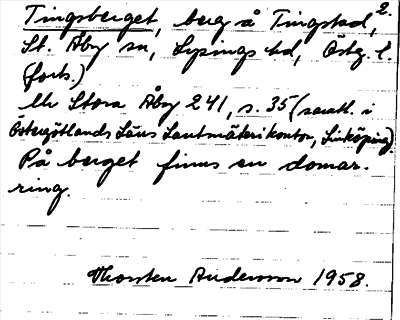 Tingsberget, berg å Tingstad, 2.
St. Åby sn, Lysings hd, Östg. l.
(forts.)
Ur Stora Åby 241, s. 35 (samtl. i
Östergötlands Läns Lantmäterikontor, Linköping).
På berget finns en domar-
ring.
Thorsten Andersson 1958.